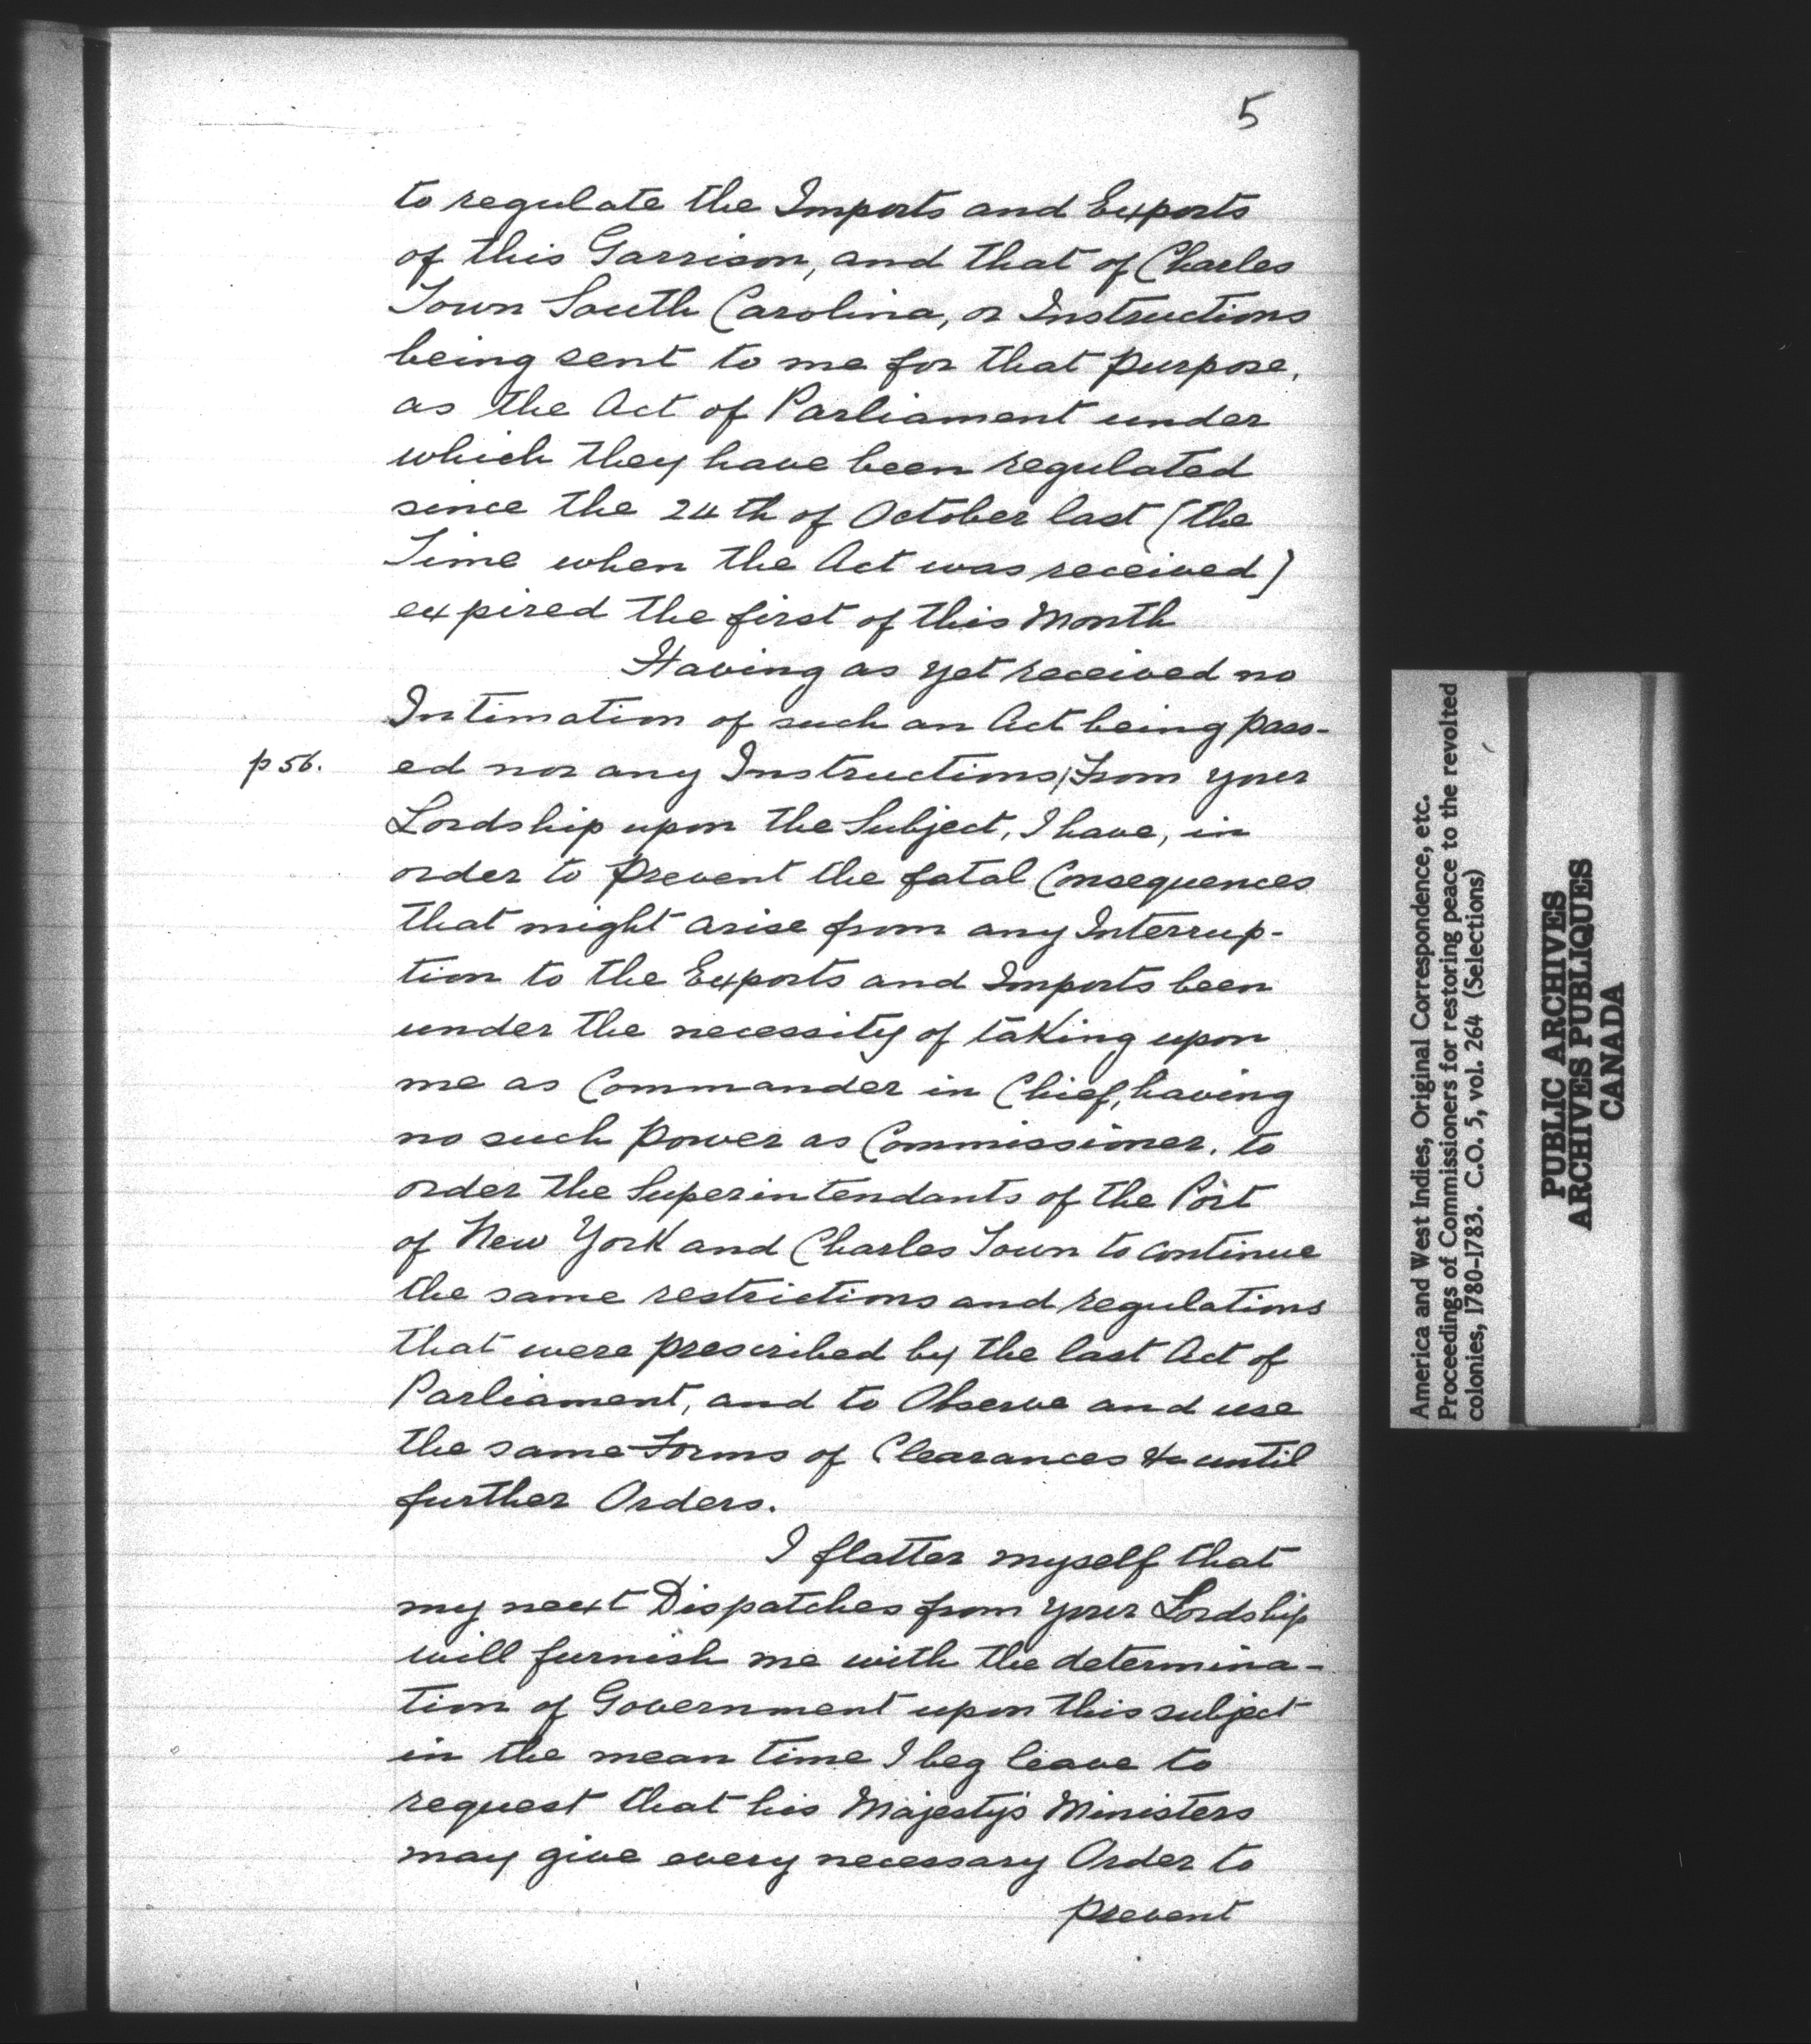 5
to regulate the Imports and Exports
of this Garrison, and that of Charles
Town South Carolina, or Instructions
being sent to me for that purpose,
as the Act of Parliament under
which they have been regulated
since the 24th of October last (the
Time when the Act was received)
expired the first of this Month
Having as yet received no
Intimation of such an Act being pass-
p 56.
ed nor any Instructions/From your
Lordship upon the Subject, I have, in
order to prevent the fatal Consequences
that might arise from any Interrup-
tion to the Exports and Imports been
under the necessity of taking upon
me as Commander in Chief, having
no such power as Commissioner, to
order the Superintendants of the Port
of New York and Charles Town to continue
the same restrictions and regulations
that were prescribed by the last Act of
Parliament, and to Observe and use
the same Forms of Clearances &c until
further Orders.
I flatter myself that
my next Dispatches from your Lordship
will furnish me with the determina-
tion of Government upon this subject
in the mean time I beg leave to
request that his Majesty's Ministers
may give every necessary Order to
prevent
America and West Indies, Original Correspondence, etc.
Proceedings of Commissioners for restoring peace to the revolted
colonies, 1780-1783. C.O. 5, vol. 264 (Selections)
PUBLIC ARCHIVES
ARCHIVES PUBLIQUES
CANADA